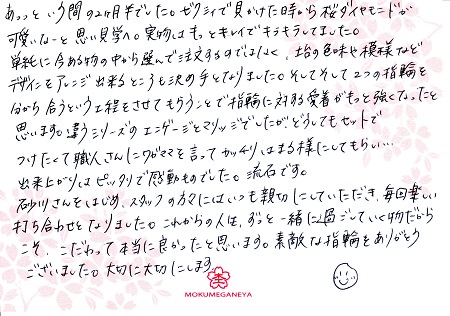 あっっと いう間の2ヶ月半でした。ゼクシィで見かけた時から桜ダイヤモンドが
可愛いな〜と思い見学へ。実物はもっとキレイでキラキラしてました。
単純に今ある物の中から選んで注文するのではなく、土台の色味や模様など
デザインをアレンジ出来るところも決め手となりました。そしてそして2つの指輪を
分かち合うという工程をさせてもらうことで指輪に対する愛着がもっと強くなったと
思います。違うシリーズのエンゲージとマリッジでしたが、どうしてもセットで
つけたくて職人さんにワガママを言ってカッチリはまる様にしてもらい…
出来上がりはピッタリで感動ものでした。流石です。
砂川さんをはじめ、スタッフの方々にはいつも親切にしていただき、毎回楽しい
打ち合わせとなりました。これからの人生、ずっと一緒に過ごしていく物だから
こそ、こだわって本当に良かったと思います。素敵な指輪をありがとう
ございました。大切に大切にします
MOKUMEGANEYA